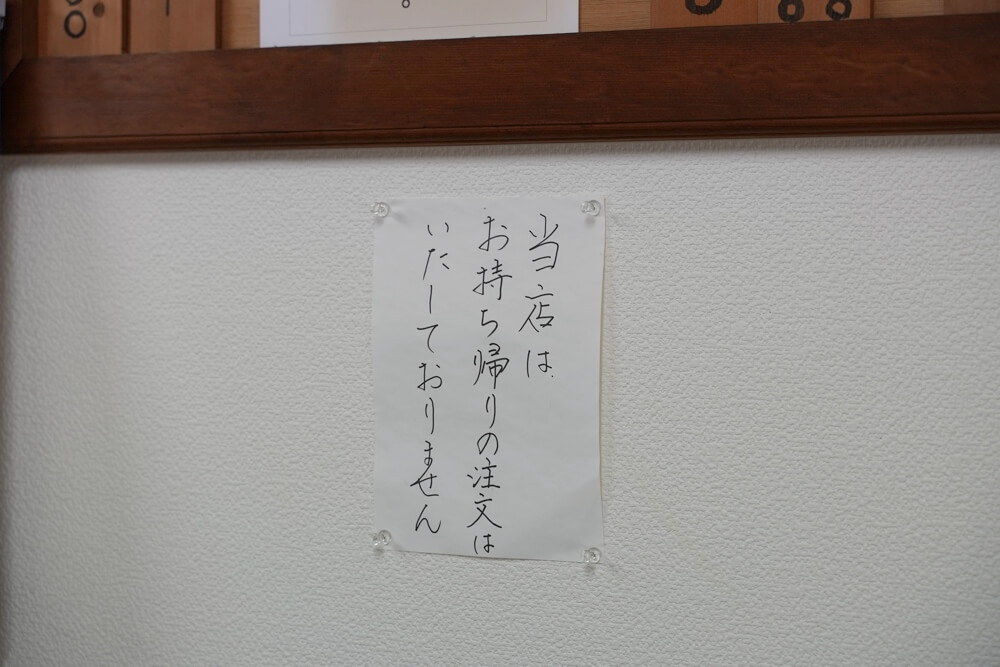 当店は
お持ち帰りの注文は
いたしておりません